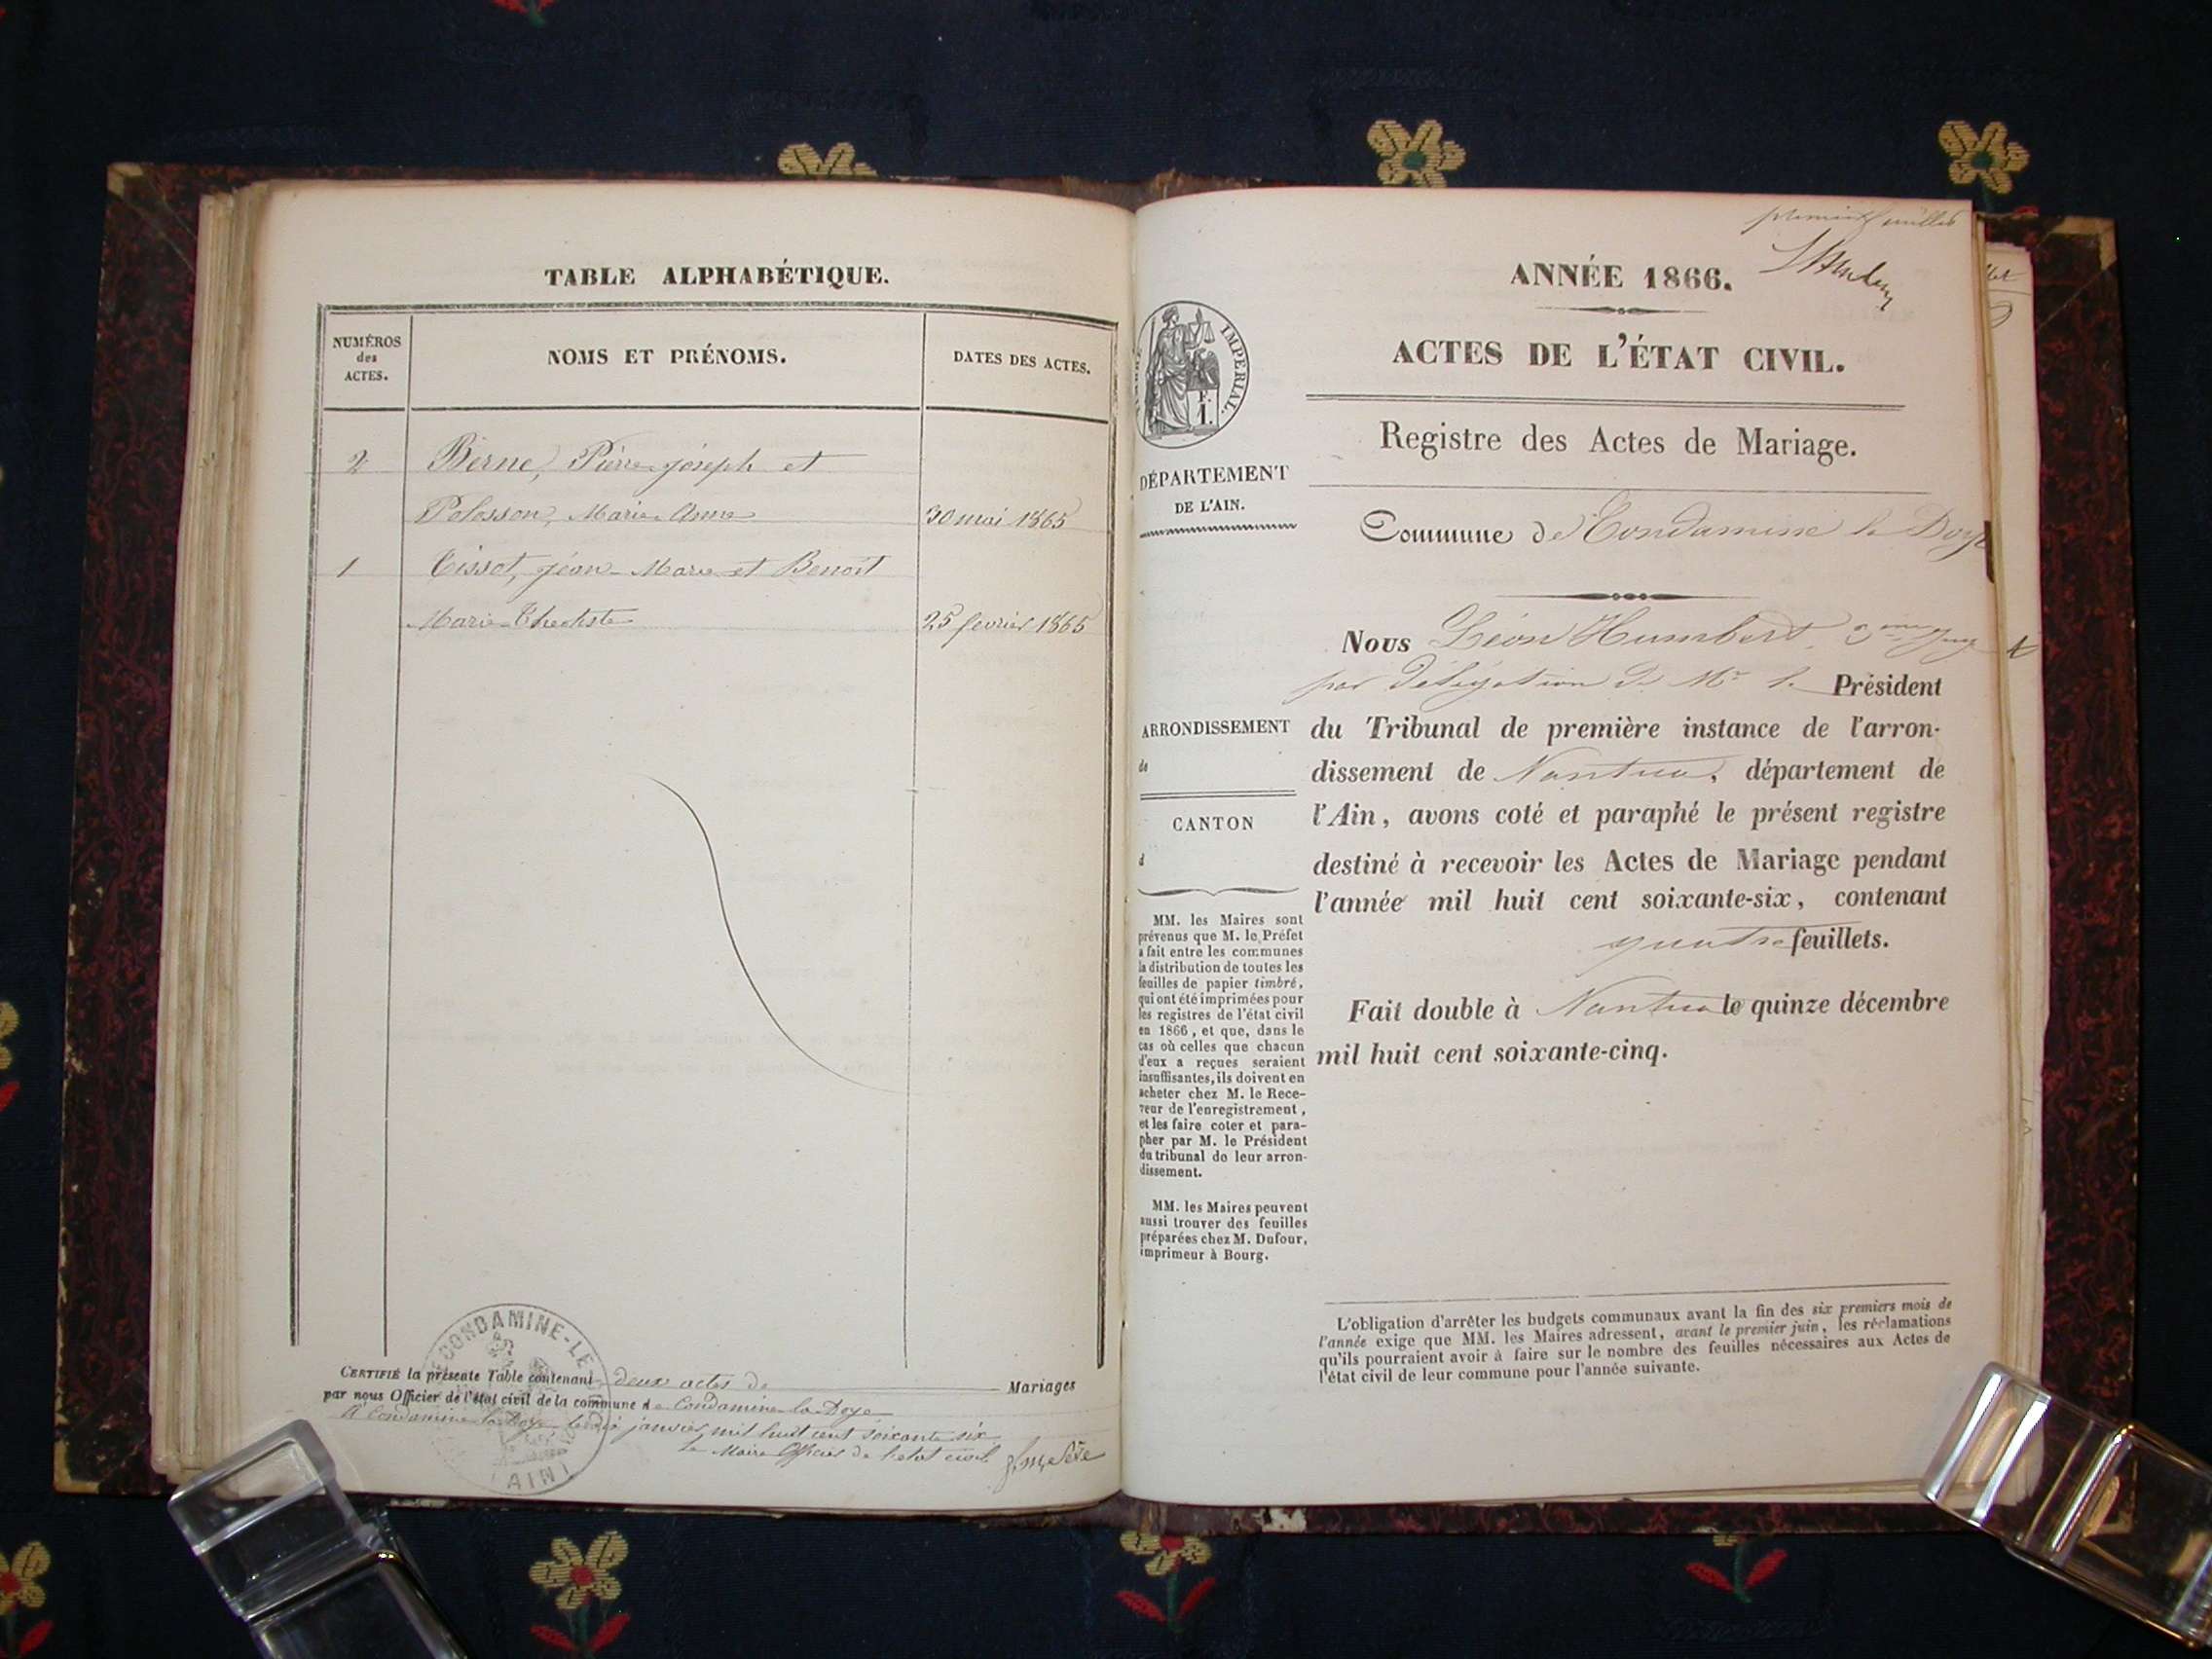 TABLE ALPHABÉTIQUE.
NUMÉROS
des
ACTES.
NOMS ET PRÉNOMS.
DATES DES ACTES.
2 Berne, Pierre-joseph et
Polosson, Marie Anne 30 mai 1865
1 Tissot, jéan-Marie et Benoit
Marie 25 fevrier 1865
CONDAMINE-LE
(AIN)
CERTIFIÉ la présente Table contenant deux actes de Mariages
par nous Officier de l'état civil de la commune de Condamine la Doye
A Condamine la Doye le janvier mil huit cent soixante six
Le Maire Officier de l'etat civil
premier feuillet
ANNÉE 1866.
ACTES DE L'ÉTAT CIVIL.
Registre des Actes de Mariage.
IMPÉRIAL.
F.
1.
DÉPARTEMENT
DE L'AIN.
Commune de Condamine la Doye
Nous Léon Humbert
par délégation de Mr le Président
du Tribunal de première instance de l'arron-
dissement de Nantua, département de
l'Ain, avons coté et paraphé le présent registre
destiné à recevoir les Actes de Mariage pendant
l'année mil huit cent soixante-six, contenant
quatre feuillets.
Fait double à Nantua le quinze décembre
mil huit cent soixante-cinq.
ARRONDISSEMENT
de
CANTON
d
MM. les Maires sont
prévenus que M. le Préfet
a fait entre les communes
la distribution de toutes les
feuilles de papier timbré,
qui ont été imprimées pour
les registres de l'état civil
en 1866, et que, dans le
cas où celles que chacun
d'eux a reçues seraient
insuffisantes, ils doivent en
acheter chez M. le Rece-
veur de l'enregistrement,
et les faire coter et para-
pher par M. le Président
du tribunal de leur arron-
dissement.
MM. les Maires peuvent
aussi trouver des feuilles
préparées chez M. Dufour,
imprimeur à Bourg.
L'obligation d'arrêter les budgets communaux avant la fin des six premiers mois de
l'année exige que MM. les Maires adressent, avant le premier juin, les réclamations
qu'ils pourraient avoir à faire sur le nombre des feuilles nécessaires aux Actes de
l'état civil de leur commune pour l'année suivante.